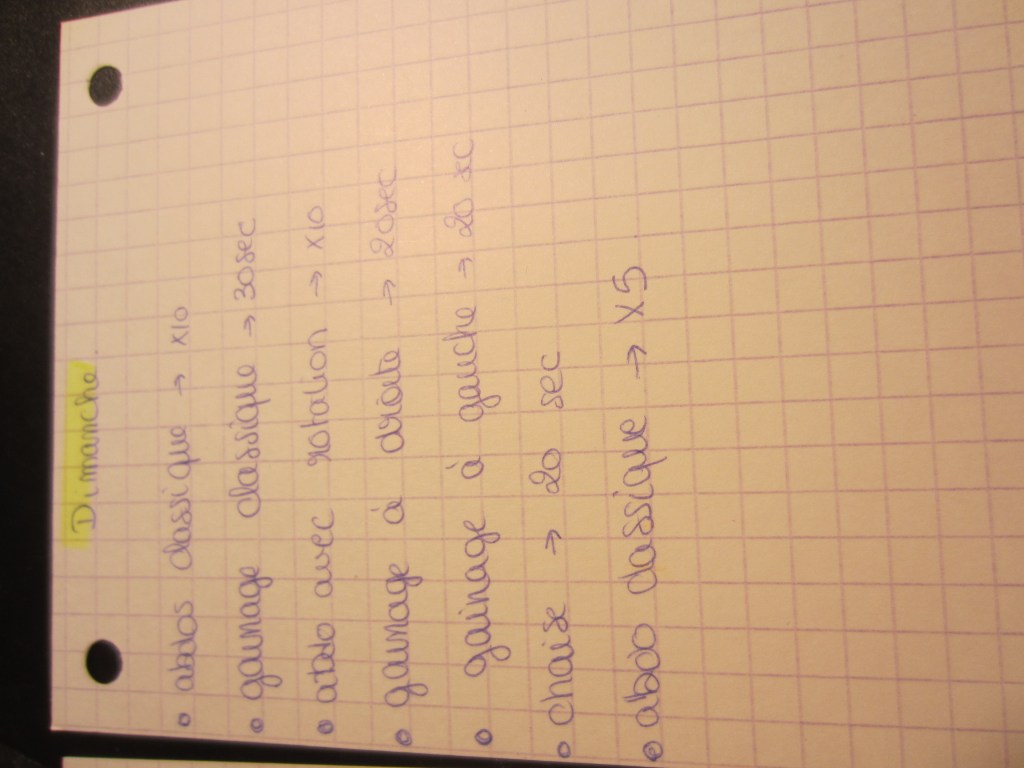 Dimanche.
• abdos classique → x10
• gainage classique → 30sec
• abdo avec rotation → x10
• gainage à droite → 20sec
• gainage à gauche → 20 sec
• chaise → 20 sec
• abdo classique → x5